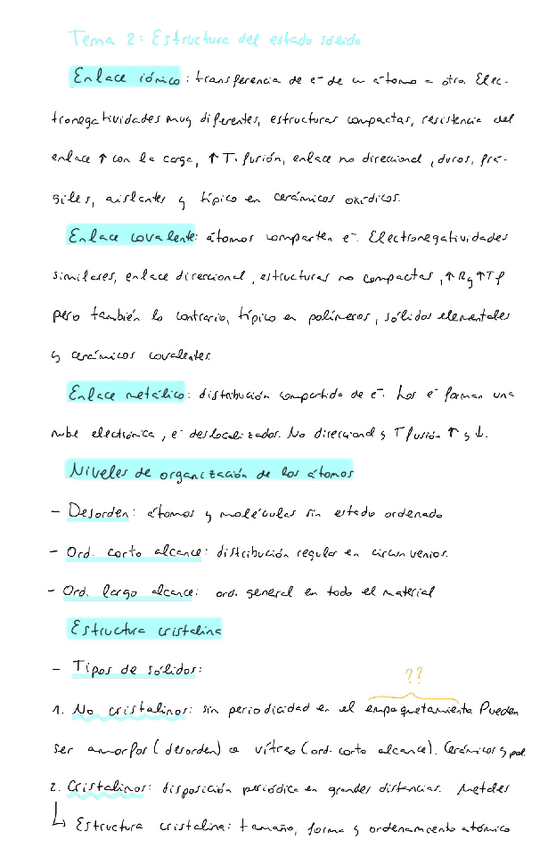 Tema 2: Estructura del estado sólido
Enlace iónico: transferencia de e⁻ de un átomo a otro. Elec-
tronegatividades muy diferentes, estructuras compactas, resistencia del
enlace ↑ con la carga, ↑ T. fusión, enlace no direccional, duros, frá-
giles, aislantes y típico en cerámicos oxídicos.
Enlace covalente: átomos comparten e⁻. Electronegatividades
similares, enlace direccional, estructuras no compactas, ↑ R y ↑ Tf
pero también lo contrario, típico en polímeros, sólidos elementales
y cerámicos covalentes.
Enlace metálico: distribución compartida de e⁻. Los e⁻ forman una
nube electrónica, e⁻ deslocalizados. No direccional y T fusión ↑ y ↓.
Niveles de organización de los átomos
- Desorden: átomos y moléculas sin estado ordenado
- Ord. corto alcance: distribución regular en circun venios.
- Ord. largo alcance: ord. general en todo el material
Estructura cristalina
- Tipos de sólidos:
??
1. No cristalinos: sin periodicidad en el empaquetamiento Pueden
ser amorfos (desorden) o vítreo (ord. corto alcance). Cerámicos y pol.
2. Cristalinos: disposición periódica en grandes distancias. Metales
↳ Estructura cristalina: tamaño, forma y ordenamiento atómico